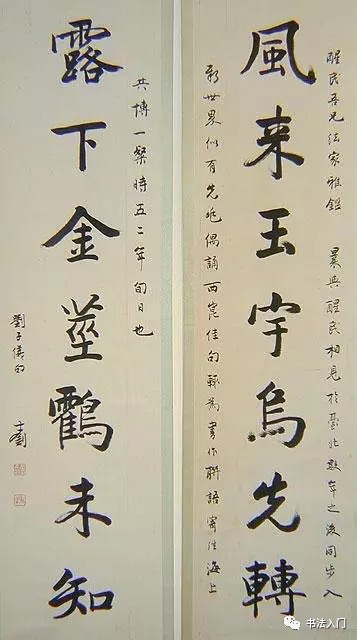 醒民吾兄法家雅鑑 曩與醒民相見於臺北數年之後同步入
風来玉宇烏先轉
新世界似有先兆偶誦西崑佳句輒為書作聯語寄往海上
共博一粲時五二年旬日也
露下金莖鸖未知
劉子儀句
书法入门